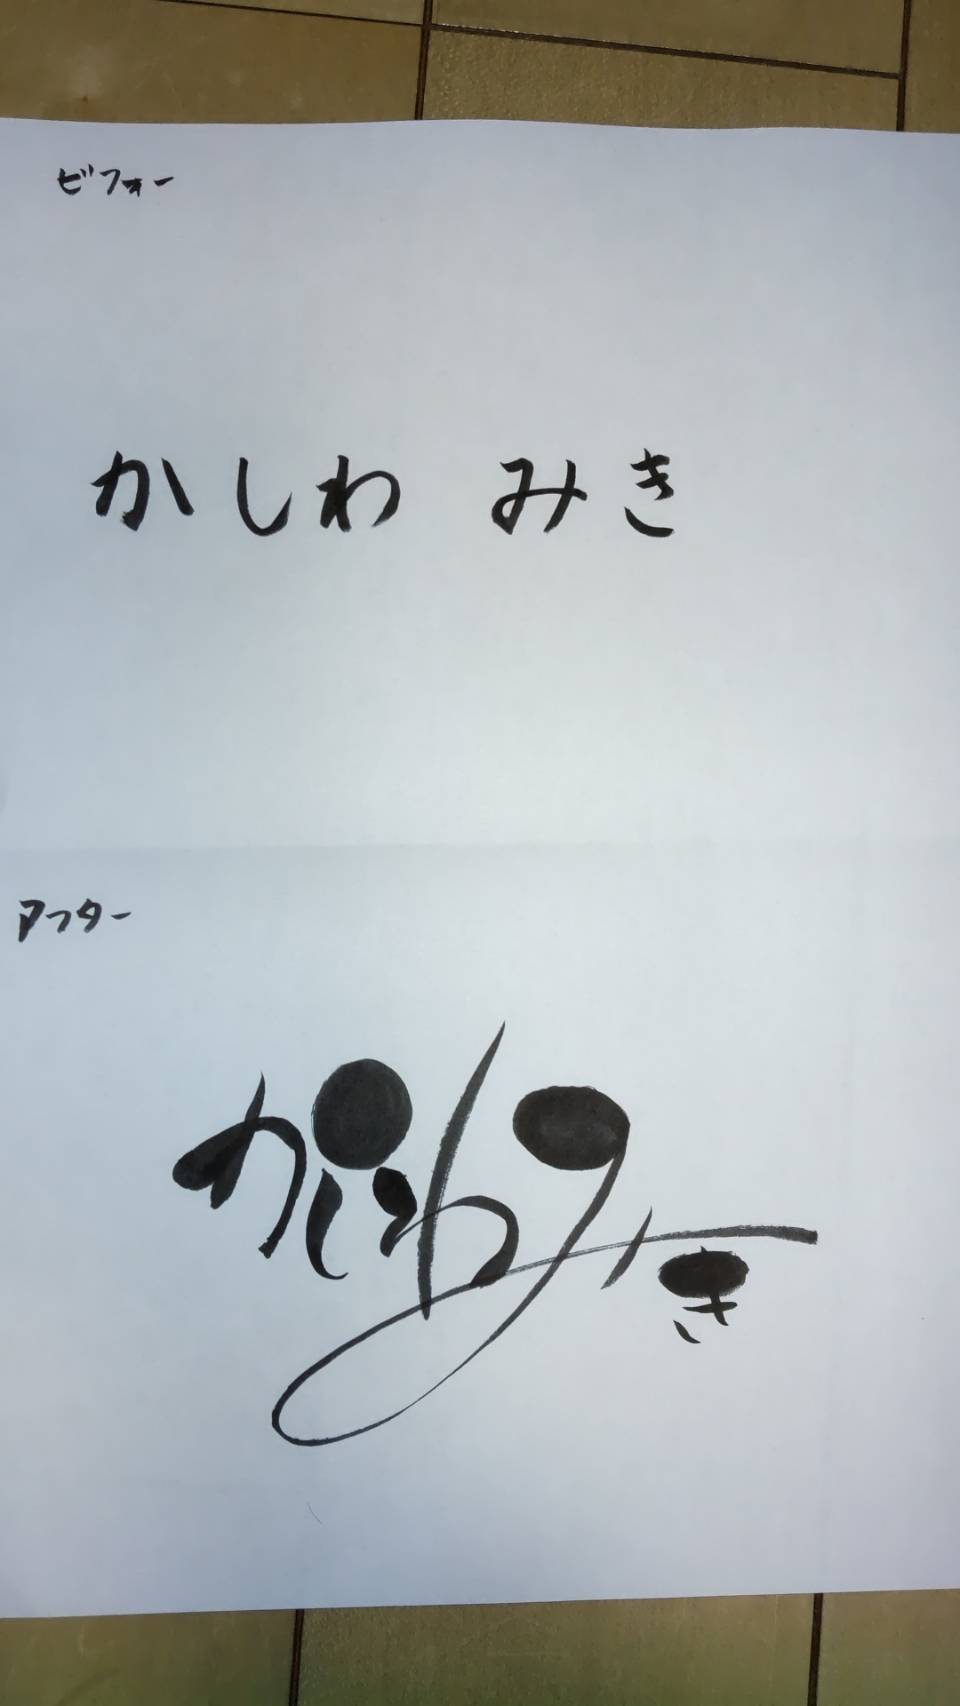 ビフォー
かしわ みき
アフター
かしわみき